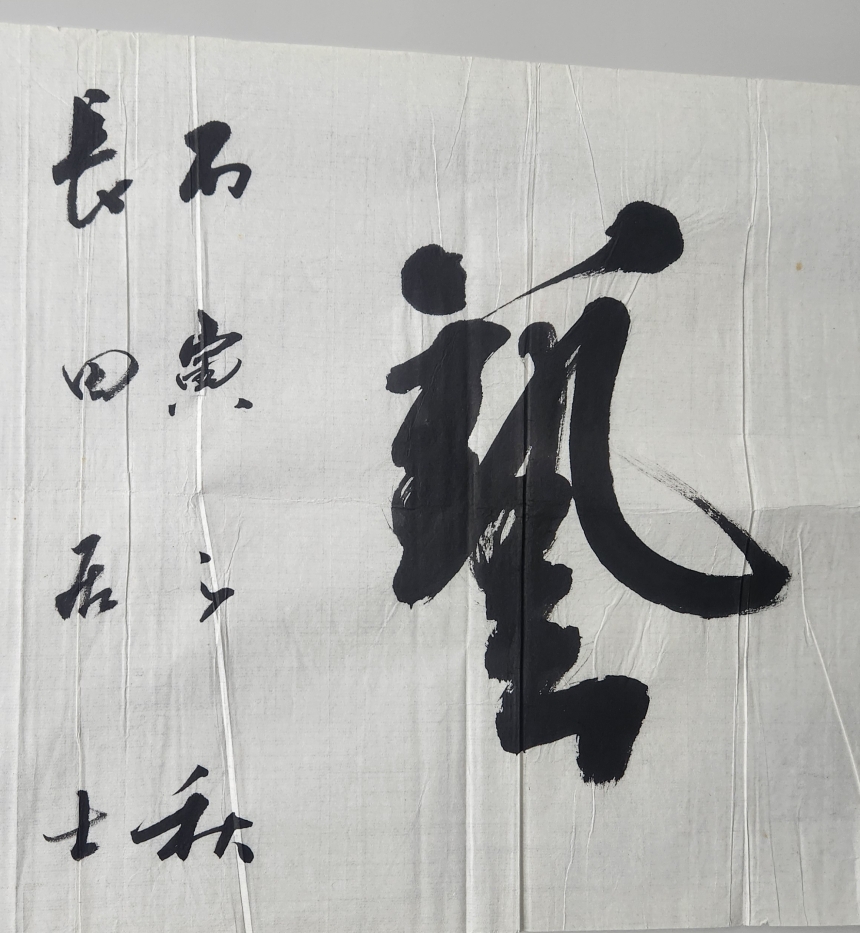 藝
丙寅之秋
長田居士